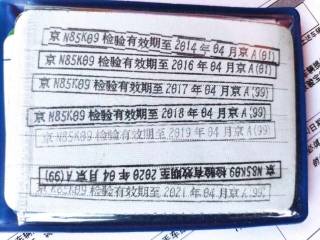 京N85K09检验有效期至2014年04月京A(01)
京N85K09检验有效期至2016年04月京A(01)
京N85K09检验有效期至2017年04月京A(99)
京N85K09检验有效期至2018年04月京A(99)
京N85K09检验有效期至2019年04月京A(99)
京N85K09检验有效期至2020年04月京A(99)
京N85K09检验有效期至2021年04月京A(99)